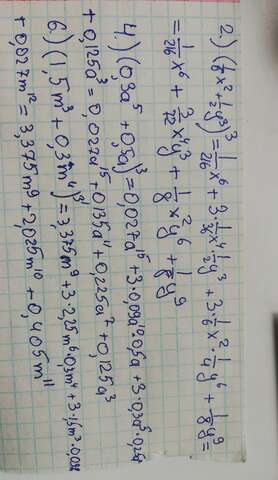 2.) (1/6 x² + 1/2 y³)³ = 1/216 x⁶ + 3·1/36 x⁴·1/2 y³ + 3·1/6 x²·1/4 y⁶ + 1/8 y⁹ =
= 1/216 x⁶ + 3/72 x⁴y³ + 1/8 x²y⁶ + 1/8 y⁹
4.) (0,3a⁵ + 0,5a)³ = 0,027a¹⁵ + 3·0,09a¹⁰·0,5a + 3·0,3a⁵·0,25a²
+ 0,125a³ = 0,027a¹⁵ + 0,135a¹¹ + 0,225a⁷ + 0,125a³
6.) (1,5m³ + 0,3m⁴)³ = 3,375m⁹ + 3·2,25m⁶·0,3m⁴ + 3·1,5m³·0,09m⁸
+ 0,027m¹² = 3,375m⁹ + 2,025m¹⁰ + 0,405m¹¹